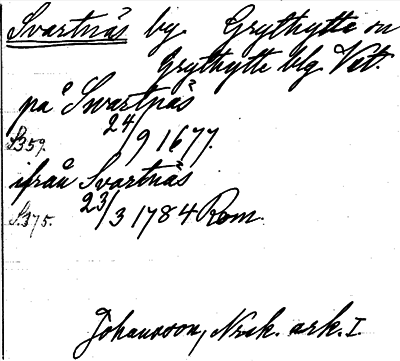 Svartnäs by Grythytte sn
Grythytte blg Vstl.
på Swartnäs
S.359. 24/9 1677.
ifrån Svartnäs
S.375. 23/3 1784 Rom.
Johansson, Nrek. ark. I.